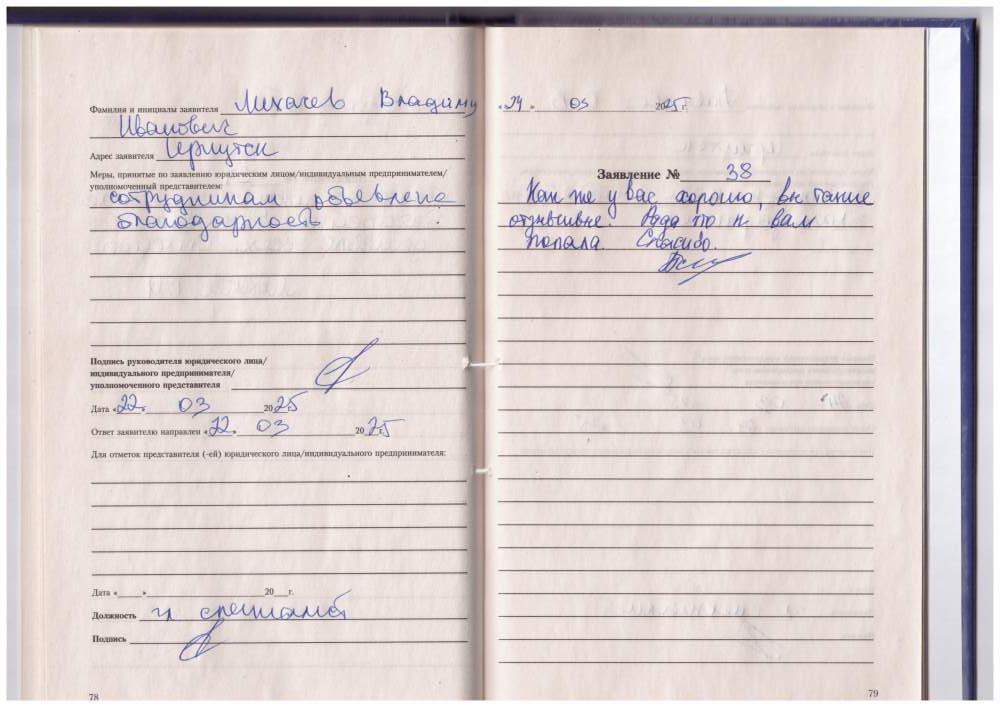 Фамилия и инициалы заявителя Лихачев Владимир
Иванович
Адрес заявителя Иркутск
Меры, принятые по заявлению юридическим лицом/индивидуальным предпринимателем/
уполномоченный представителем:
сотрудникам объявлена
благодарность
Подпись руководителя юридического лица/
индивидуального предпринимателя/
уполномоченного представителя
Дата «22» 03 2025 г.
Ответ заявителю направлен «22» 03 2025 г.
Для отметок представителя (-ей) юридического лица/индивидуального предпринимателя:
Дата «___» ___ 20__ г.
Должность гл специалист
Подпись
78
«24» 03 2025 г.
Заявление № 38
Как же у вас хорошо, вы такие
отзывчивые. Рада что к вам
попала. Спасибо.
79